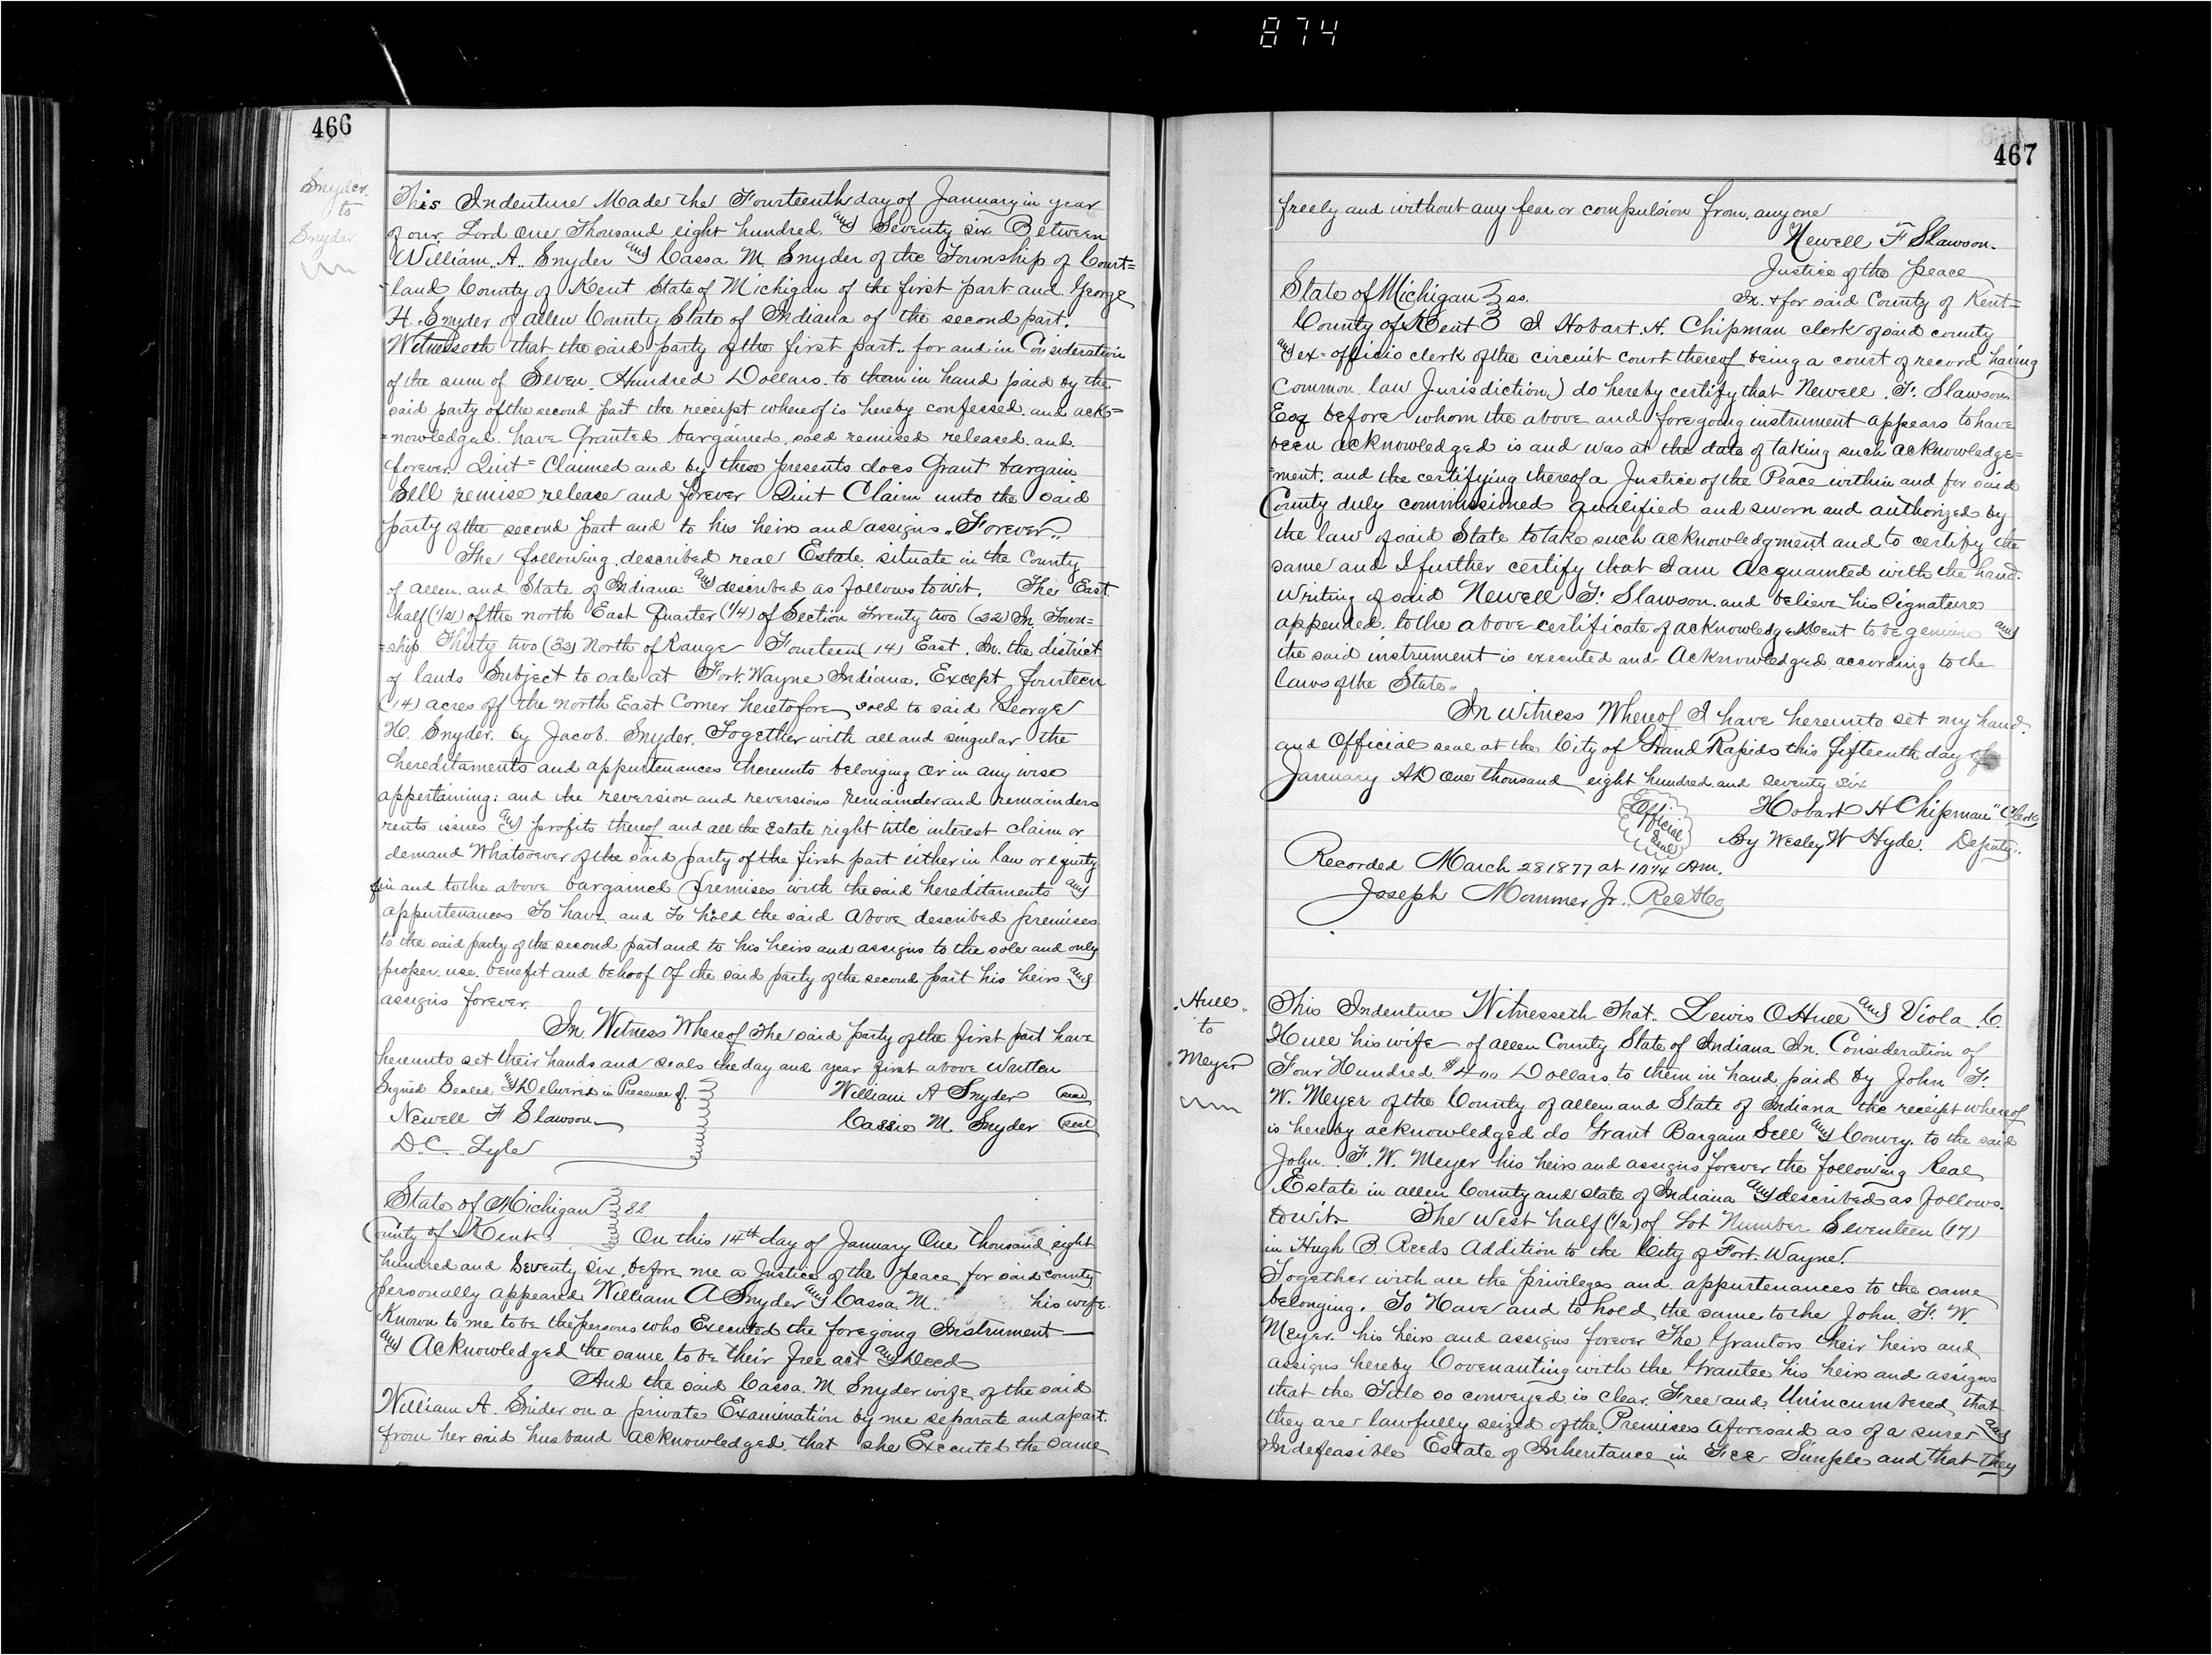 874
466
Snyder
to
Snyder
This Indenture Made The Fourteenth day of January in year
of our Lord One Thousand eight hundred and Seventy six Between
William. A. Snyder and Cassa M. Snyder of the Township of Court=
land County of Kent State of Michigan of the first part and George
H. Snyder of allen County State of Indiana of the second part.
Witnesseth that the said party of the first part.. for and in Consideration
of the sum of Seven Hundred Dollars. to them in hand paid by the
said party of the second part the receipt whereof is hereby confessed. and ack=
=nowledged. have Granted bargained. sold remised released. and
forever. Quit=Claimed and by these presents does Grant bargain
Sell remise release and forever Quit Claim unto the said
party of the second part and to his heirs and assigns. Forever..
The following described real Estate situate in the County
of allen. and. State of Indiana and described as follows to wit. The East
half (1/2) of the north East Quarter (1/4) of Section Twenty two (22) In Town=
=ship Thirty two (32) North of Range Fourteen (14) East. In. the district
of lands Subject to sale at Fort. Wayne Indiana. Except fourteen
(14) acres off the north East Corner heretofore sold to said George
H. Snyder. by Jacob. Snyder. Together with all and singular the
hereditaments and appurtenances thereunto belonging or in any wise
appertaining: and the reversion and reversions remainder and remainders
rents issues and profits thereof and all the Estate right title interest claim or
demand Whatsoever of the said party of the first part either in law or equity
in and to the above bargained premises with the said hereditaments and
appurtenances To have and To hold the said Above described premises
to the said party of the second part and to his heirs and assigns to the sole and only
proper. use. benefit and behoof Of the said party of the second part his heirs and
assigns forever.
In Witness Whereof The said party of the first part have
hereunto set their hands and seals the day and year first above Written
Signed Sealed and Delivered in Presence of. William A Snyder seal
Newell F Slawson Cassie M. Snyder seal
D. C. Lyle
State of Michigan ss
County of Kent. On this 14th day of January One thousand eight
hundred and Seventy six before me a Justice of the peace for said county
personally appeared William A Snyder and Cassa M. his wife
Known to me to be the persons who Executed the foregoing Instrument
and Acknowledged the same to be their free act and Deed
And the said Cassa. M Snyder wife of the said
William A. Snider on a private Examination by me separate and apart.
from her said husband acknowledged that she Executed the same
467
freely and without any fear or compulsion from any one
Newell F Slawson.
Justice of the peace
State of Michigan ss. In. & for said County of Kent=
County of Kent I Hobart. H. Chipman clerk of said county
and ex=officio clerk of the circuit court thereof being a court of record having
Common law Jurisdiction) do hereby certify that Newell. F. Slawson
Esq before whom the above and foregoing instrument appears to have
been acknowledged is and was at the date of taking such acknowledge=
=ment. and the certifying thereof a Justice of the Peace within and for said
County duly commissioned qualified and sworn and authorized by
the law of said State to take such acknowledgment and to certify the
same and I further certify that I am acquainted with the hand.
Writing of said Newell F. Slawson. and believe his signature
appended. to the above certificate of acknowledgement to be genuine and
the said instrument is executed and Acknowledged according to the
laws of the State.
In Witness Whereof I have hereunto set my hand
and Official seal at the City of Grand Rapids this fifteenth day of
January AD One thousand eight hundred and seventy six
Official Seal Hobart H Chipman" Clerk
By Wesley W Hyde. Deputy.
Recorded March 28 1877 at 10 1/4 Am.
Joseph Mommer Jr. Rec
Hull
to
Meyer
This Indenture Witnesseth That.. Lewis O Hull and Viola. C
Hull his wife of allen County State of Indiana In. Consideration of
Four Hundred $400 Dollars to them in hand paid by John F.
W. Meyer of the County of allen and State of Indiana the receipt whereof
is hereby acknowledged do Grant Bargain Sell and Convey. to the said
John. F. W. Meyer his heirs and assigns forever the following Real
Estate in allen County and state of Indiana and described as follows.
to wit. The West half (1/2) of Lot Number Seventeen (17)
in Hugh B. Reeds Addition to the City of Fort. Wayne.
Together with all the privileges and appurtenances to the same
belonging. To Have and to hold the same to the John. F. W.
Meyer. his heirs and assigns forever The Grantors their heirs and
assigns hereby Covenanting with the Grantee his heirs and assigns
that the Title so conveyed is clear. Free and. Unincumbered that
they are lawfully seized of the Premises aforesaid as of a sure and
Indefeasible Estate of Inheritance in Fee Simple and that they